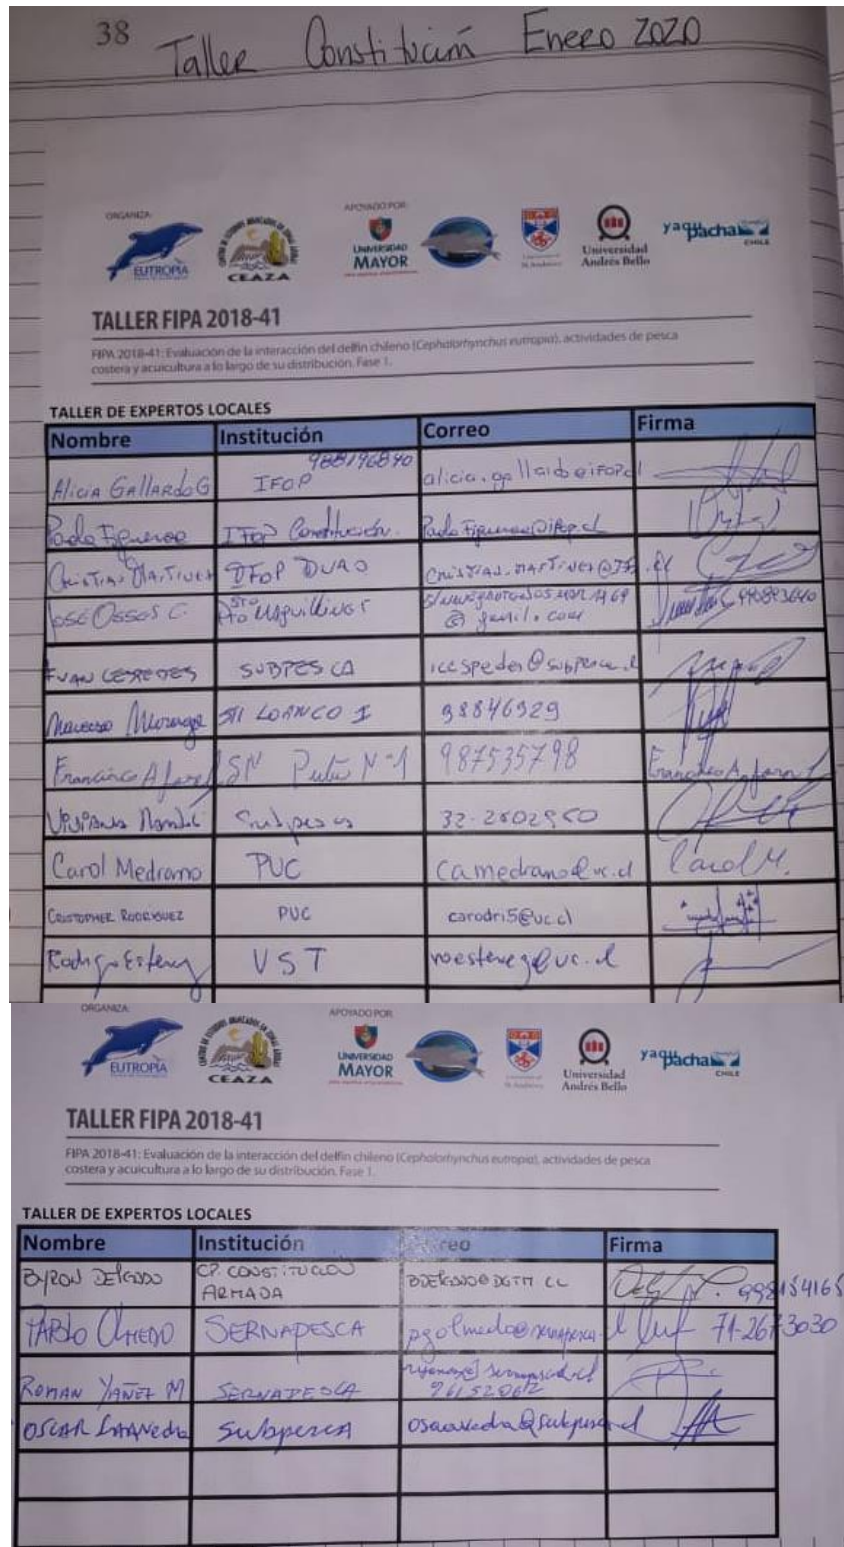 38
Taller Constitución Enero 2020
ORGANIZA:
APOYADO POR:
EUTROPIA
CENTRO DE ESTUDIOS AVANZADOS EN ZONAS ÁRIDAS
CEAZA
UNIVERSIDAD
MAYOR
Universidad
Andrés Bello
yaqu pacha
CHILE
TALLER FIPA 2018-41
FIPA 2018-41: Evaluación de la interacción del delfín chileno (Cephalorhynchus eutropia), actividades de pesca
costera y acuicultura a lo largo de su distribución. Fase 1.
TALLER DE EXPERTOS LOCALES
Nombre Institución Correo Firma
988196840
Alicia Gallardo G IFOP alicia.gallardo@ifop.cl
Paola Figueroa IFOP Constitución. Paola.Figueroa@ifop.cl
Cristian Martinez IFOP DUAO
José Osses C. Pto Maguillines @ gmail.com 990893640
Ivan Cespedes SUBPESCA icespedes@subpesca.cl
STI LOANCO I 98846929
Francisco SN Putú N-1 987535798 Francisco A.
Viviana Subpesca
Carol Medrano PUC camedrano@uc.cl Carol M.
Cristopher Rodriguez PUC carodri5@uc.cl
Rodrigo Estevez VST roestevez@uc.cl
ORGANIZA:
APOYADO POR:
EUTROPIA
CENTRO DE ESTUDIOS AVANZADOS EN ZONAS ÁRIDAS
CEAZA
UNIVERSIDAD
MAYOR
Universidad
Andrés Bello
yaqu pacha
CHILE
TALLER FIPA 2018-41
FIPA 2018-41: Evaluación de la interacción del delfín chileno (Cephalorhynchus eutropia), actividades de pesca
costera y acuicultura a lo largo de su distribución. Fase 1.
TALLER DE EXPERTOS LOCALES
Nombre Institución Correo Firma
Byron Delgado CP. CONSTITUCION BDELGADO@DGTM.CL 998154165
ARMADA
Pablo Olmedo SERNAPESCA pgolmedo@sernapesca.cl 71-2673030
Roman Yañez M SERNAPESCA 961520612
OSCAR Saavedra Subpesca osaavedra@subpesca.cl